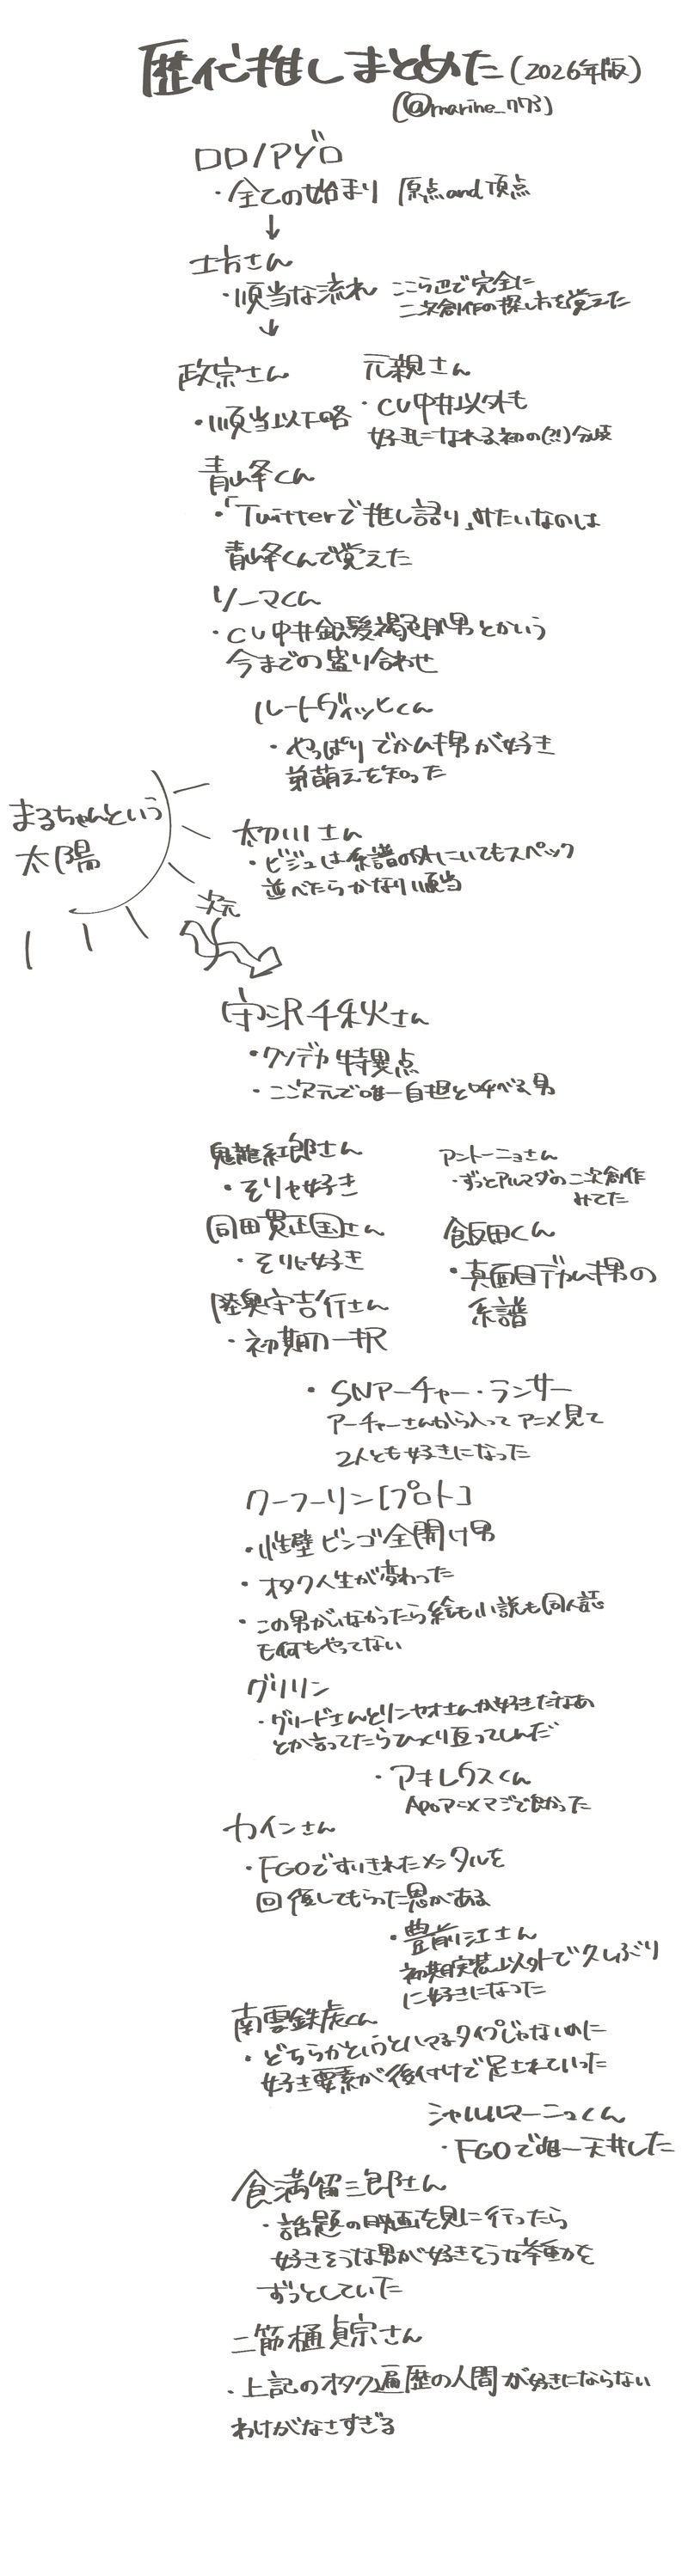 歴代推しまとめた(2026年版)
(@marine_773)
ロロノアゾロ
・全ての始まり 原点and頂点
↓
土方さん
・順当な流れ ここら辺で完全に
二次創作の探し方を覚えた
↓
政宗さん
・順当以下略
元親さん
・CV中井以外も
好きになれる初の(?!)分岐
青峰くん
・「Twitterで推し語り」みたいなのは
青峰くんで覚えた
ソーマくん
・CV中井銀髪褐色肌男とかいう
今までの寄り合わせ
ルートヴィッヒくん
・やっぱりでかムキ男が好き
弟萌えを知った
まるちゃんという
太陽
初川さん
・ビジュは系譜の外にいてもスペック
並べたらかなり順当
次元
守沢千秋さん
・クソデカ特異点
・二次元で唯一自担と呼べる男
鬼龍紅郎さん
・そりゃ好き
アントーニョさん
・ずっとアルマダの二次創作
みてた
同田貫正国さん
・そりゃ好き
飯田くん
・真面目デカムキ男の
系譜
陸奥守吉行さん
・初期刀一択
・SNアーチャー・ランサー
アーチャーさんから入ってアニメ見て
2人とも好きになった
クーフーリン[プロト]
・性壁ビンゴ全開け男
・オタク人生が変わった
・この男がいなかったら絵も小説も同人誌
も何もやってない
グリリン
・グリードさんとリンヤオさんが好きだなあ
とか言ってたらひっくり返ってしんだ
・アキレウスくん
Apoアニメマジで良かった
カインさん
・FGOですりきれたメンタルを
回復してもらった恩がある
・豊前江さん
初期実装以外で久しぶり
に好きになった
南雲鉄虎くん
・どちらかというとハマるタイプじゃないのに
好き要素が後付けで足されていった
シャルルマーニュくん
・FGOで唯一天井した
食満留三郎さん
・話題の映画を見に行ったら
好きそうな男が好きそうな挙動を
ずっとしていた
二筋樋貞宗さん
・上記のオタク遍歴の人間が好きにならない
わけがなさすぎる